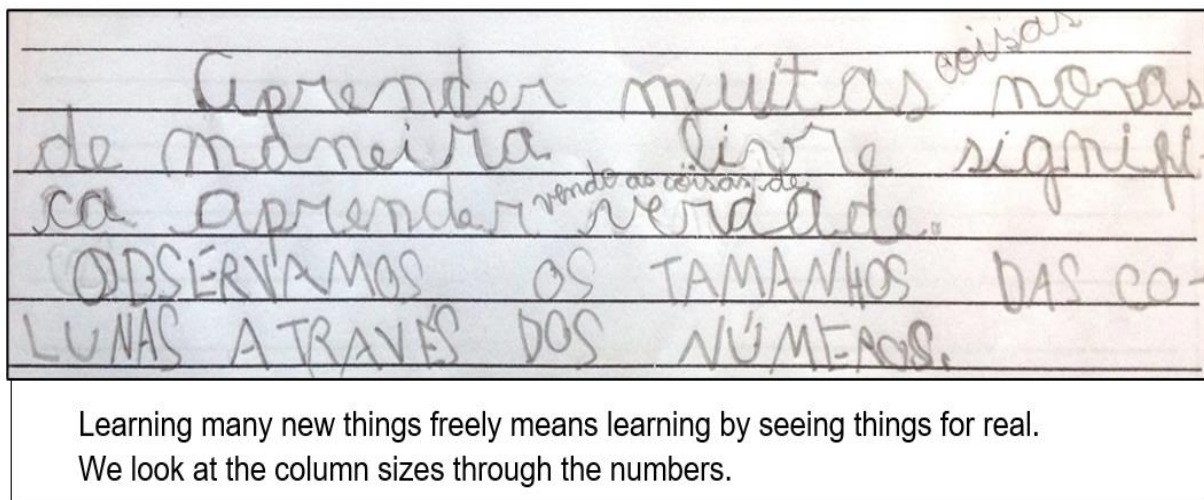 coisas
Aprender muitas novas
de maneira livre signifi-
vendo as coisas de
ca aprender verdade.
OBSERVAMOS OS TAMANHOS DAS CO-
LUNAS ATRAVÉS DOS NÚMEROS.
Learning many new things freely means learning by seeing things for real.
We look at the column sizes through the numbers.